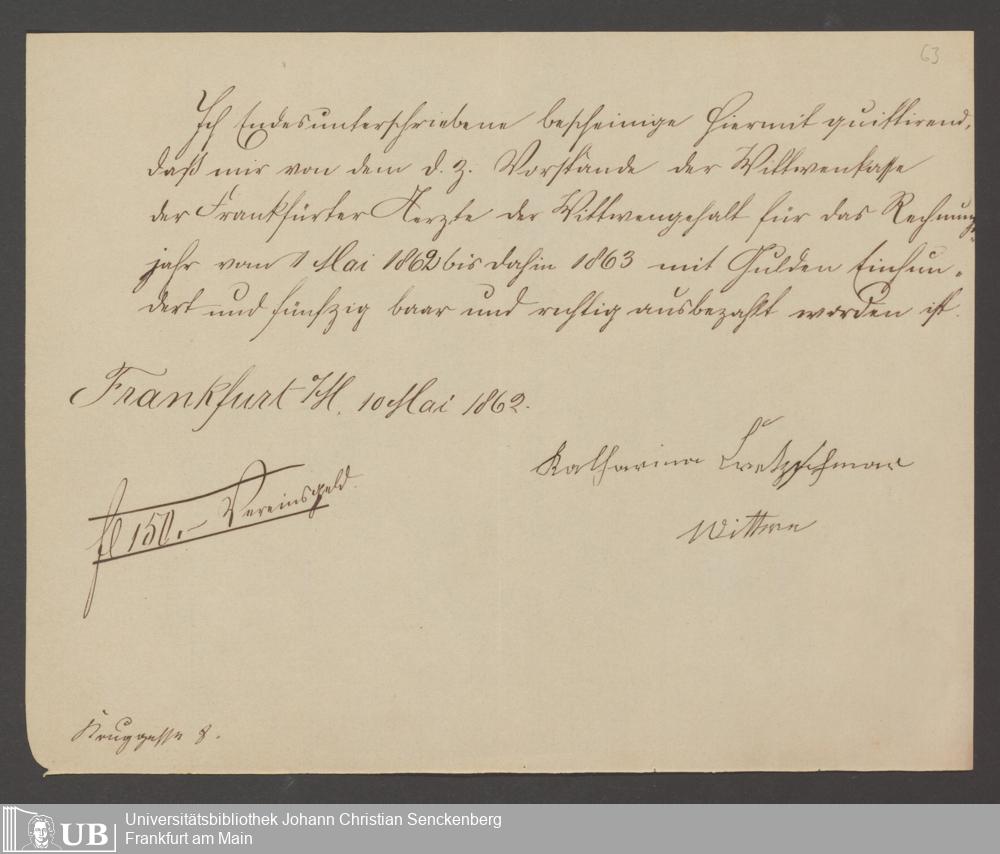 63
Ich Endesunterschriebene bescheinige hiermit quittirend,
daß mir von dem d. z. Vorstande der Wittwenkasse
der Frankfurter Aerzte der Wittwengehalt für das Rechnungs-
jahr vom 1 Mai 1862 bis dahin 1863 mit Gulden Einhun-
dert und fünfzig baar und richtig ausbezahlt worden ist.
Frankfurt a/M. 10 Mai 1862.
Katharina Cretzschmar
Wittwe
fl 150.- Vereinsgeld.
Kruggasse 8.
UB
Universitätsbibliothek Johann Christian Senckenberg
Frankfurt am Main